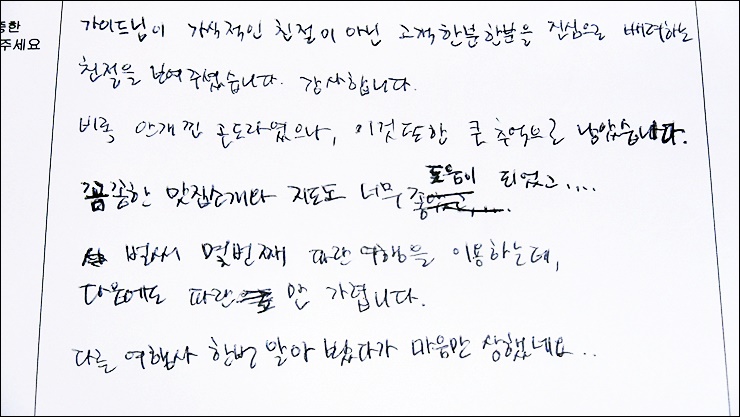 중한
주세요
가이드님이 가식적인 친절이 아닌 고객한분한분을 진심으로 배려하는
친절을 보여주셨습니다. 감사합니다.
비록 안개낀 곤도라였으나, 이것또한 큰 추억으로 남았습니다.
꼼꼼한 맛집소개와 지도도 너무 도움이 되었고....
벌써 몇번째 파란여행을 이용하는데,
다음에도 파란 만 가렵니다.
다른 여행사 한번 알아 봤다가 마음만 상했네요..